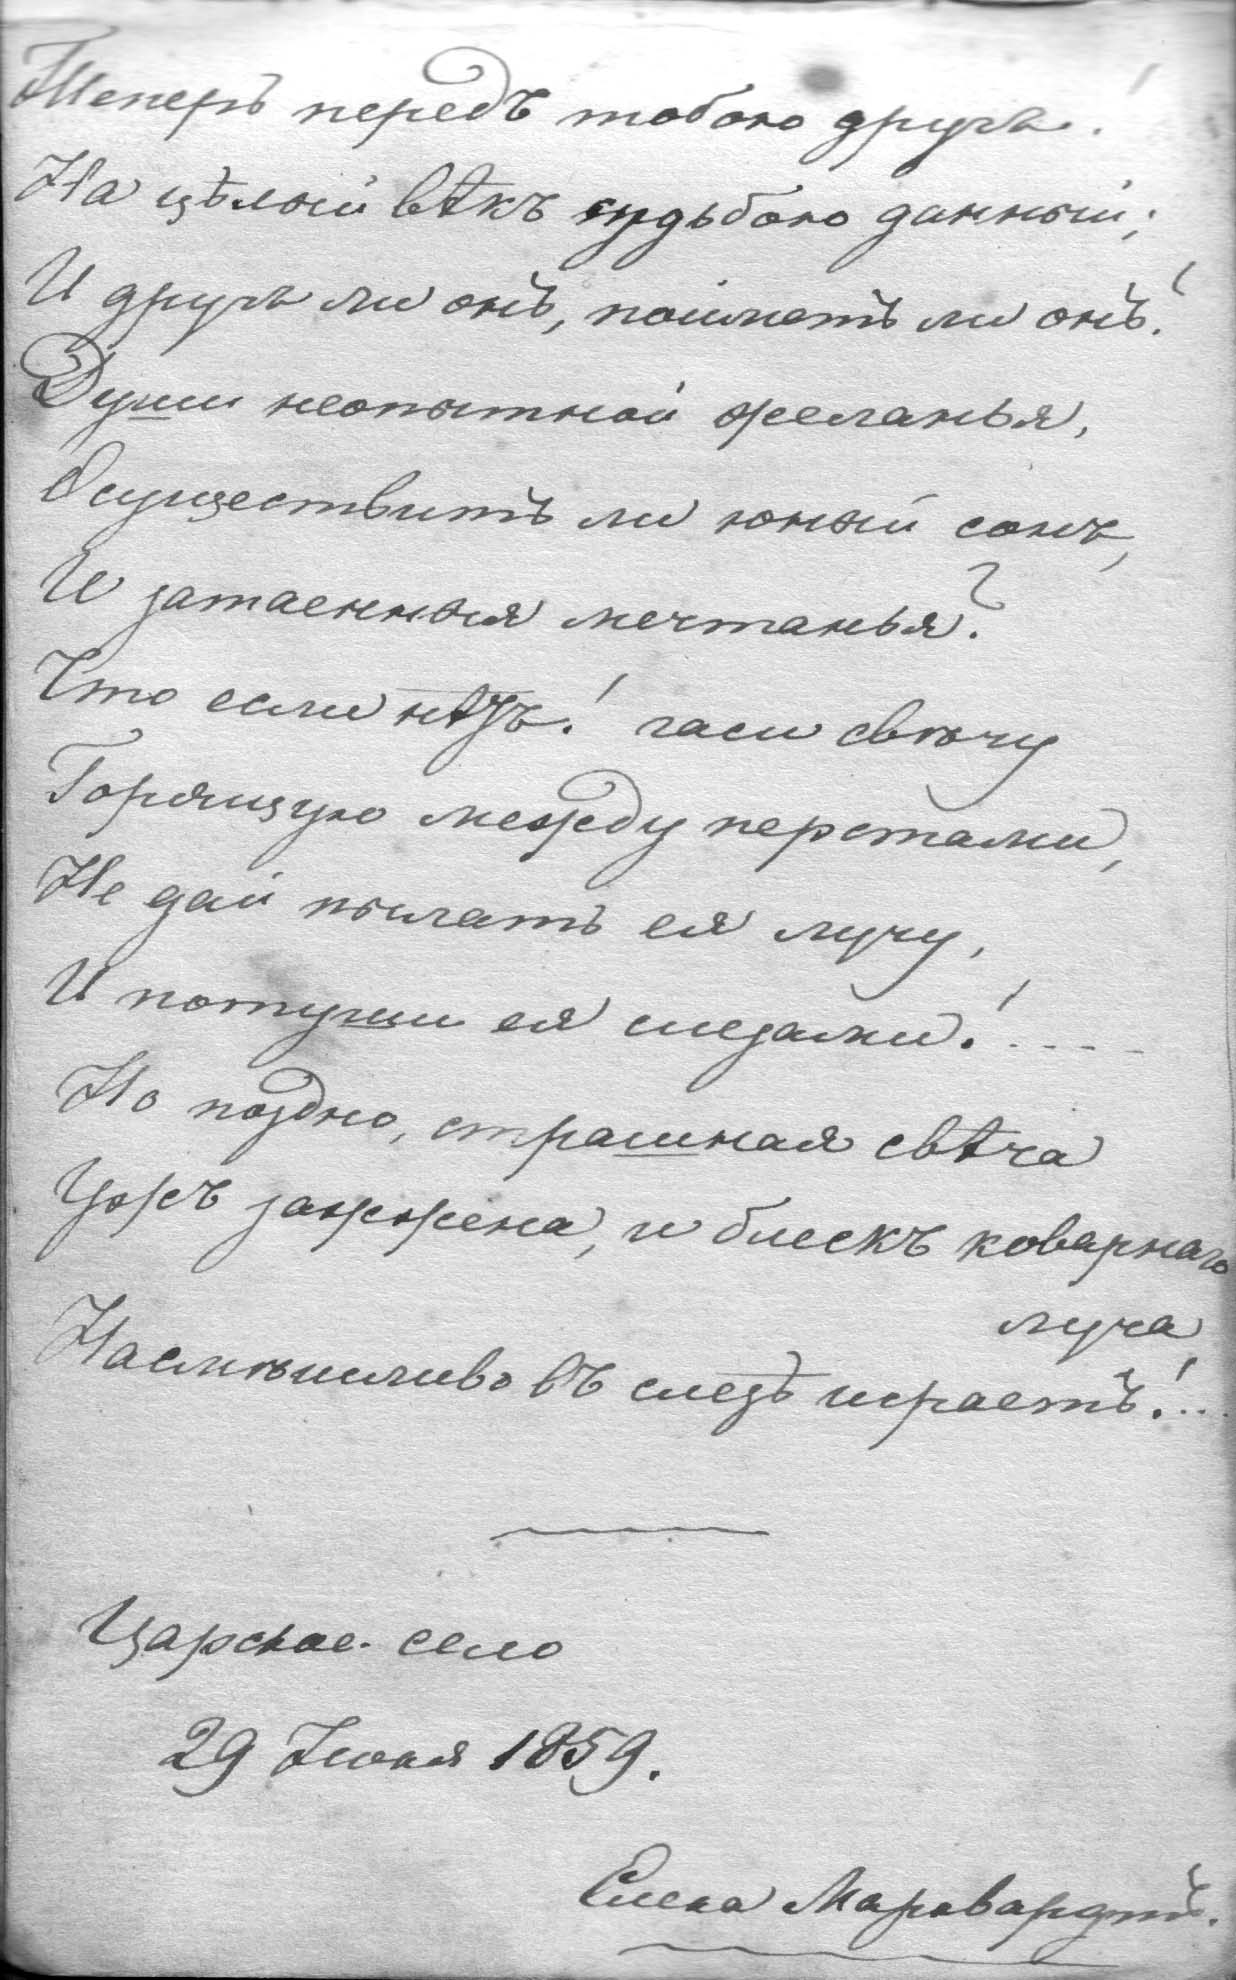 Теперь передъ тобою другъ!
На цѣлый вѣкъ судьбою данный;
И другъ ли онъ, пойметъ ли онъ!
Души неопытной желанья,
Осуществитъ ли юный сонъ,
И затаенныя мечтанья?
Что если нѣтъ! гаси свѣчу
Горящую между перстами,
Не дай пылать ея лучу,
И потуши ея слезами!....
Но поздно, страшная свѣча
Ужъ зажжена, и блескъ коварнаго
луча
Насмѣшливо въ слезѣ играетъ!...
Царское село
29 Іюня 1859.
Елена